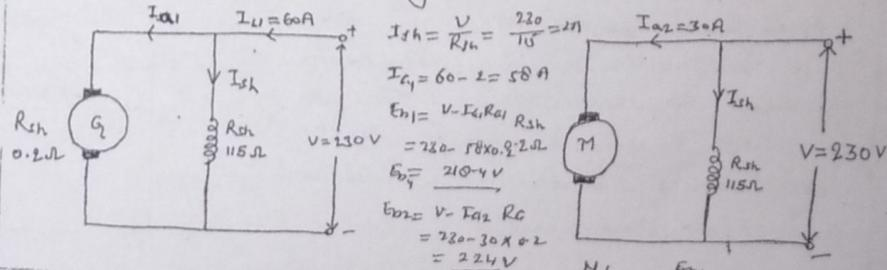 Ia1
IL1 = 60A
+
Ish
Rsh
0.2Ω
G
Rsh
115Ω
V = 230 V
-
Ish = V/Rsh = 230/115 = 2A
Ia1 = 60 - 2 = 58 A
Eb1 = V - Ia1 Ra1
= 230 - 58x0.2
Eb1 = 218.4 V
Eb2 = V - Ia2 Ra
= 230 - 30 x 0.2
= 224 V
Rsh
0.2Ω
Ia2 = 30A
+
Ish
M
Rsh
115Ω
V = 230V
-